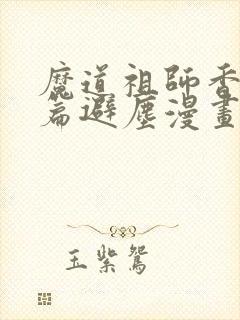 魔道祖師香
篇避塵漫畫
玉紫鴛